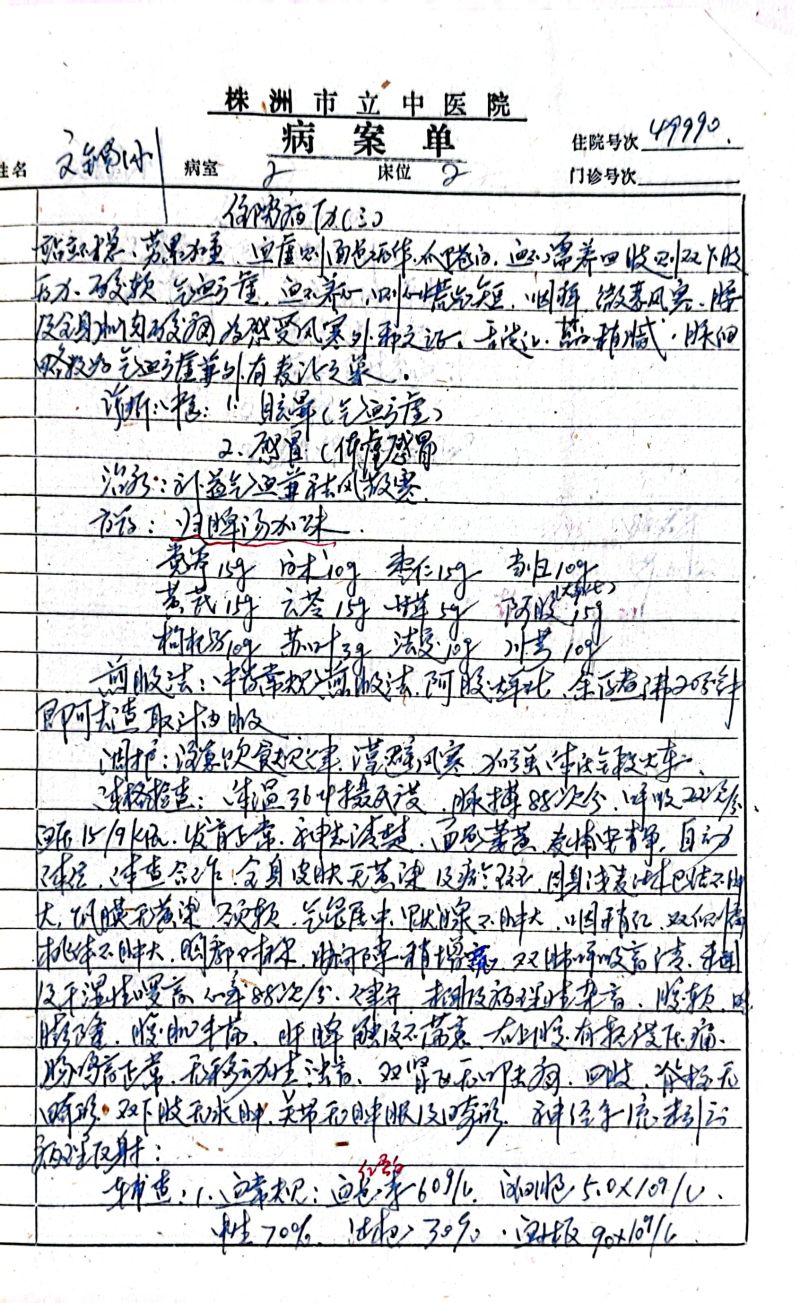 株洲市立中医院
病案单
住院号次 49990.
姓名 病室 2 床位 2 门诊号次
住院病历(三)
站立不稳、劳累加重、血虚则面色无华、爪甲苍白，血不濡养四肢则双下肢
无力、酸软，气血亏虚，血不养心，则心慌气短，咽痒，微恶风寒、腰
及全身肌肉酸痛为感受风寒外邪之证。舌淡红、苔稍腻，脉细
略数为气血亏虚兼外有表证之象。
诊断：中医：1. 眩晕（气血亏虚）
2. 感冒（体虚感冒
治疗：补益气血兼祛风散寒
方药：归脾汤加味.
党参15g 白术10g 枣仁15g 当归10g
黄芪15g 云苓15g 甘草5g 阿胶15g
枸杞10g 苏叶3g 法夏10g 川芎10g
煎服法：中药常规煎服法，阿胶烊化，余药煮沸20分钟
即可去渣取汁内服
调护：注意饮食规律，谨避风寒，加强体质锻炼.
体格检查：体温36 摄氏度，脉搏88次分，呼吸22次/分
血压15/9KPa、发育正常、神志清楚、面色萎黄，表情安静，自动
体位，体查合作，全身皮肤无黄染及瘀斑，周身浅表淋巴结不肿
大，巩膜无黄染，颈软，气管居中，甲状腺不肿大，咽稍红，双侧扁
桃体不肿大，胸廓对称，肋间隙稍增宽，双肺呼吸音清，未闻
及干湿性啰音，心率88次/分，律齐，未闻及病理性杂音，腹软，
膨隆，腹肌柔，肝脾触及不满意，右上腹有轻度压痛、
肠鸣音正常，无移动性浊音，双肾区无叩击痛，四肢、脊柱无
畸形，双下肢无水肿，关节无肿胀及畸形，神经系统未引出
病理反射：
辅查：1. 血常规：血红蛋白60g/L，白细胞5.0×10⁹/L.
中性70%、淋巴30%，血小板90×10⁹/L